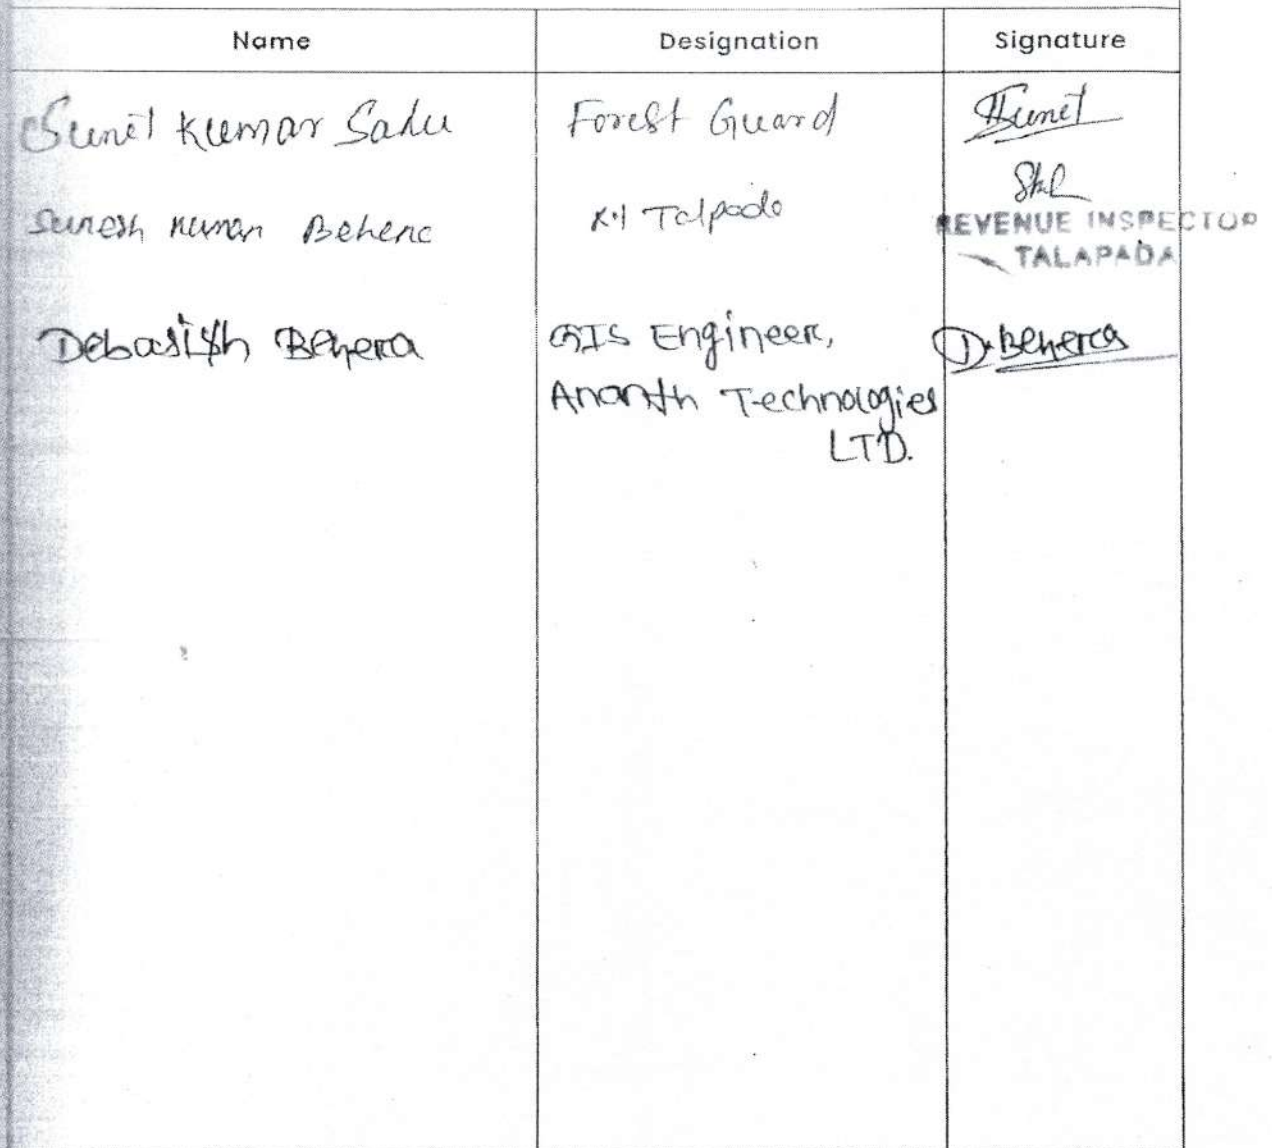 Name Designation Signature
Sunil Kumar Sahu Forest Guard Sunil
Suresh Kumar Behera R.I Talpada
REVENUE INSPECTOR
TALAPADA
Debasish Behera GIS Engineer, D.Behera
Ananth Technologies
LTD.